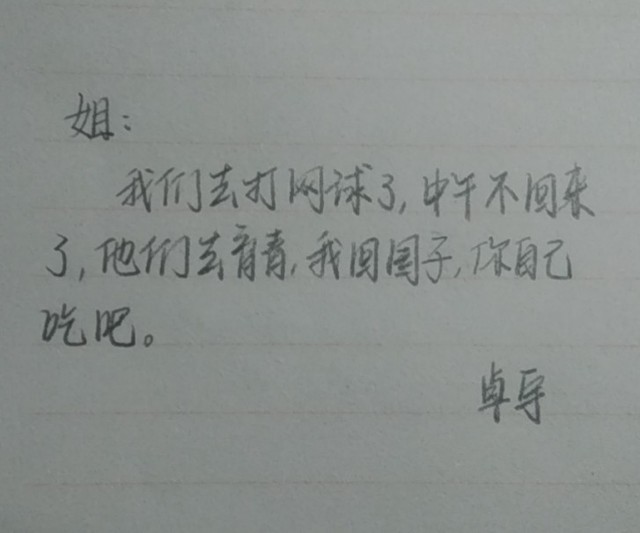 姐:
我们去打网球了,中午不回来
了,他们去育青,我回国子,你自己
吃吧。
卓宇